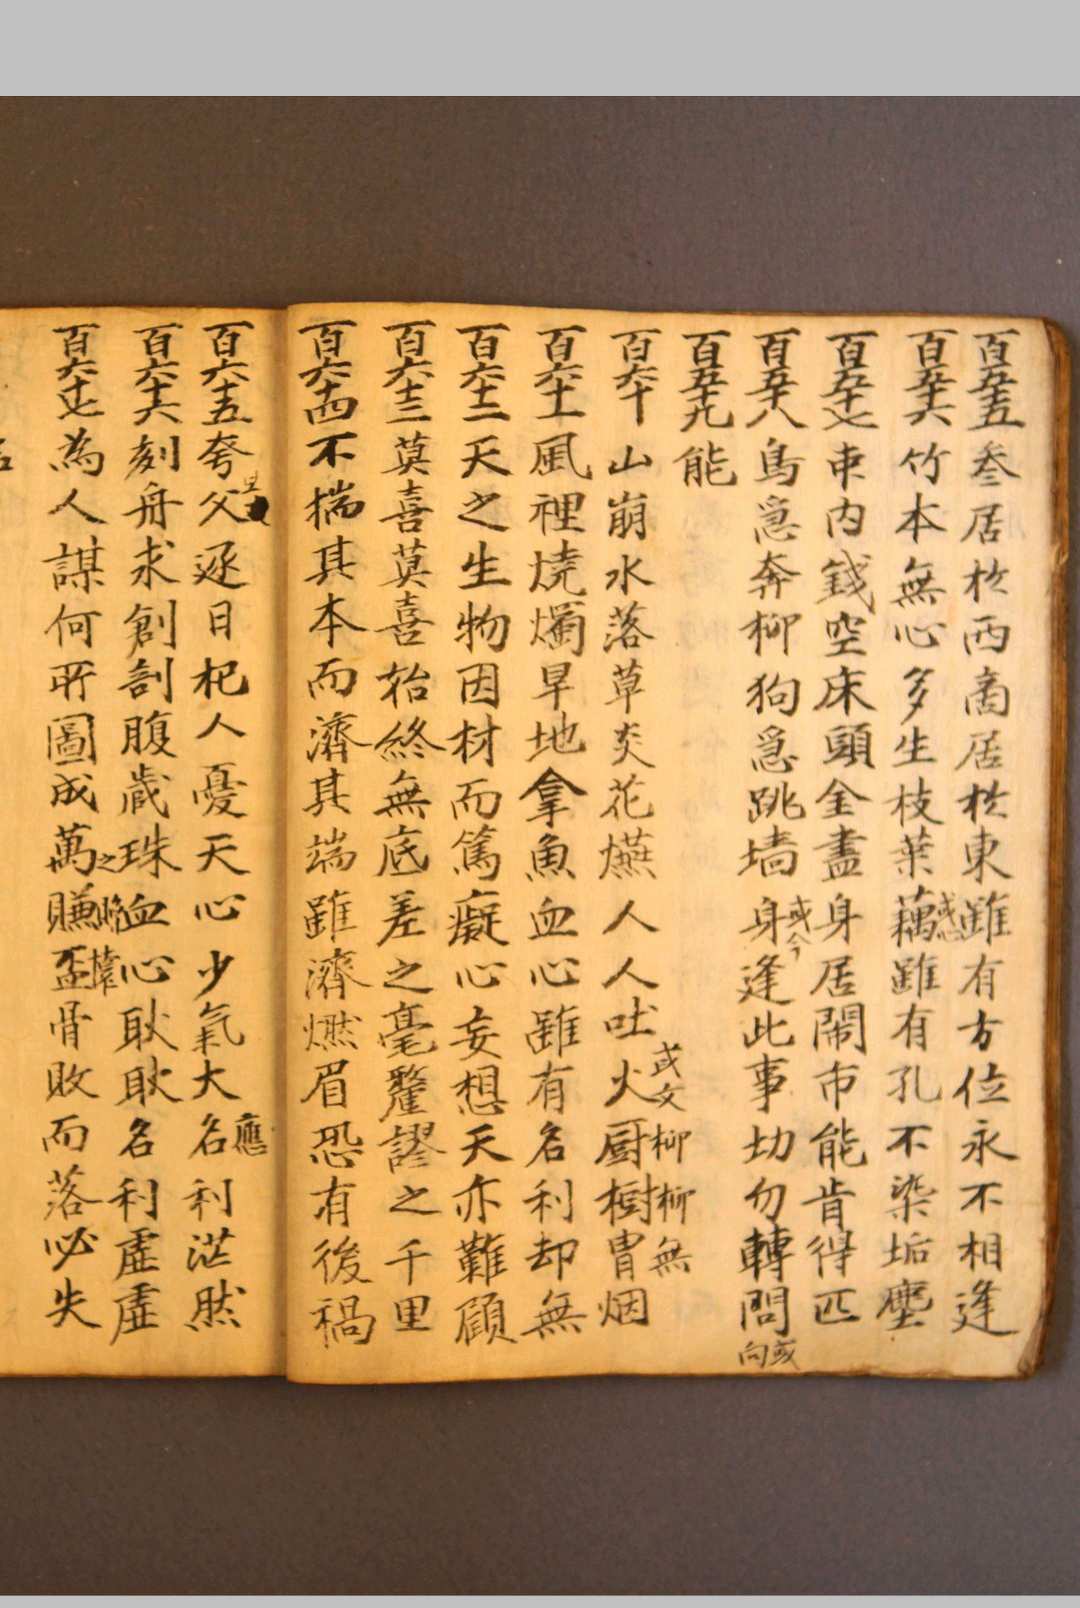 百五十五叄居於西商居於東雖有方位永不相逢
百五十六竹本無心多生枝葉藕雖有孔不染垢塵
或惑
百五十七東內錢空床頭金盡身居鬧市能肯得匹
百五十八鳥急奔柳狗急跳墙身逢此事切勿轉問
或今
或向
百五十九能
百六十山崩水落草炎花爊人人吐火厨樹冐烟
或文柳柳無
百六十一風裡燒燭旱地拿魚血心雖有名利却無
百六十二天之生物因材而篤癡心妄想天亦難顧
百六十三莫喜莫喜始終無底差之毫釐謬之千里
百六十四不揣其本而濟其端雖濟燃眉恐有後禍
百六十五夸父逐日杞人憂天心少氣大名利茫然
應
百六十六刻舟求劍剖腹藏珠血心耿耿名利虛虛
百六十七為人謀何所圖成萬賺盃骨敗而落必失